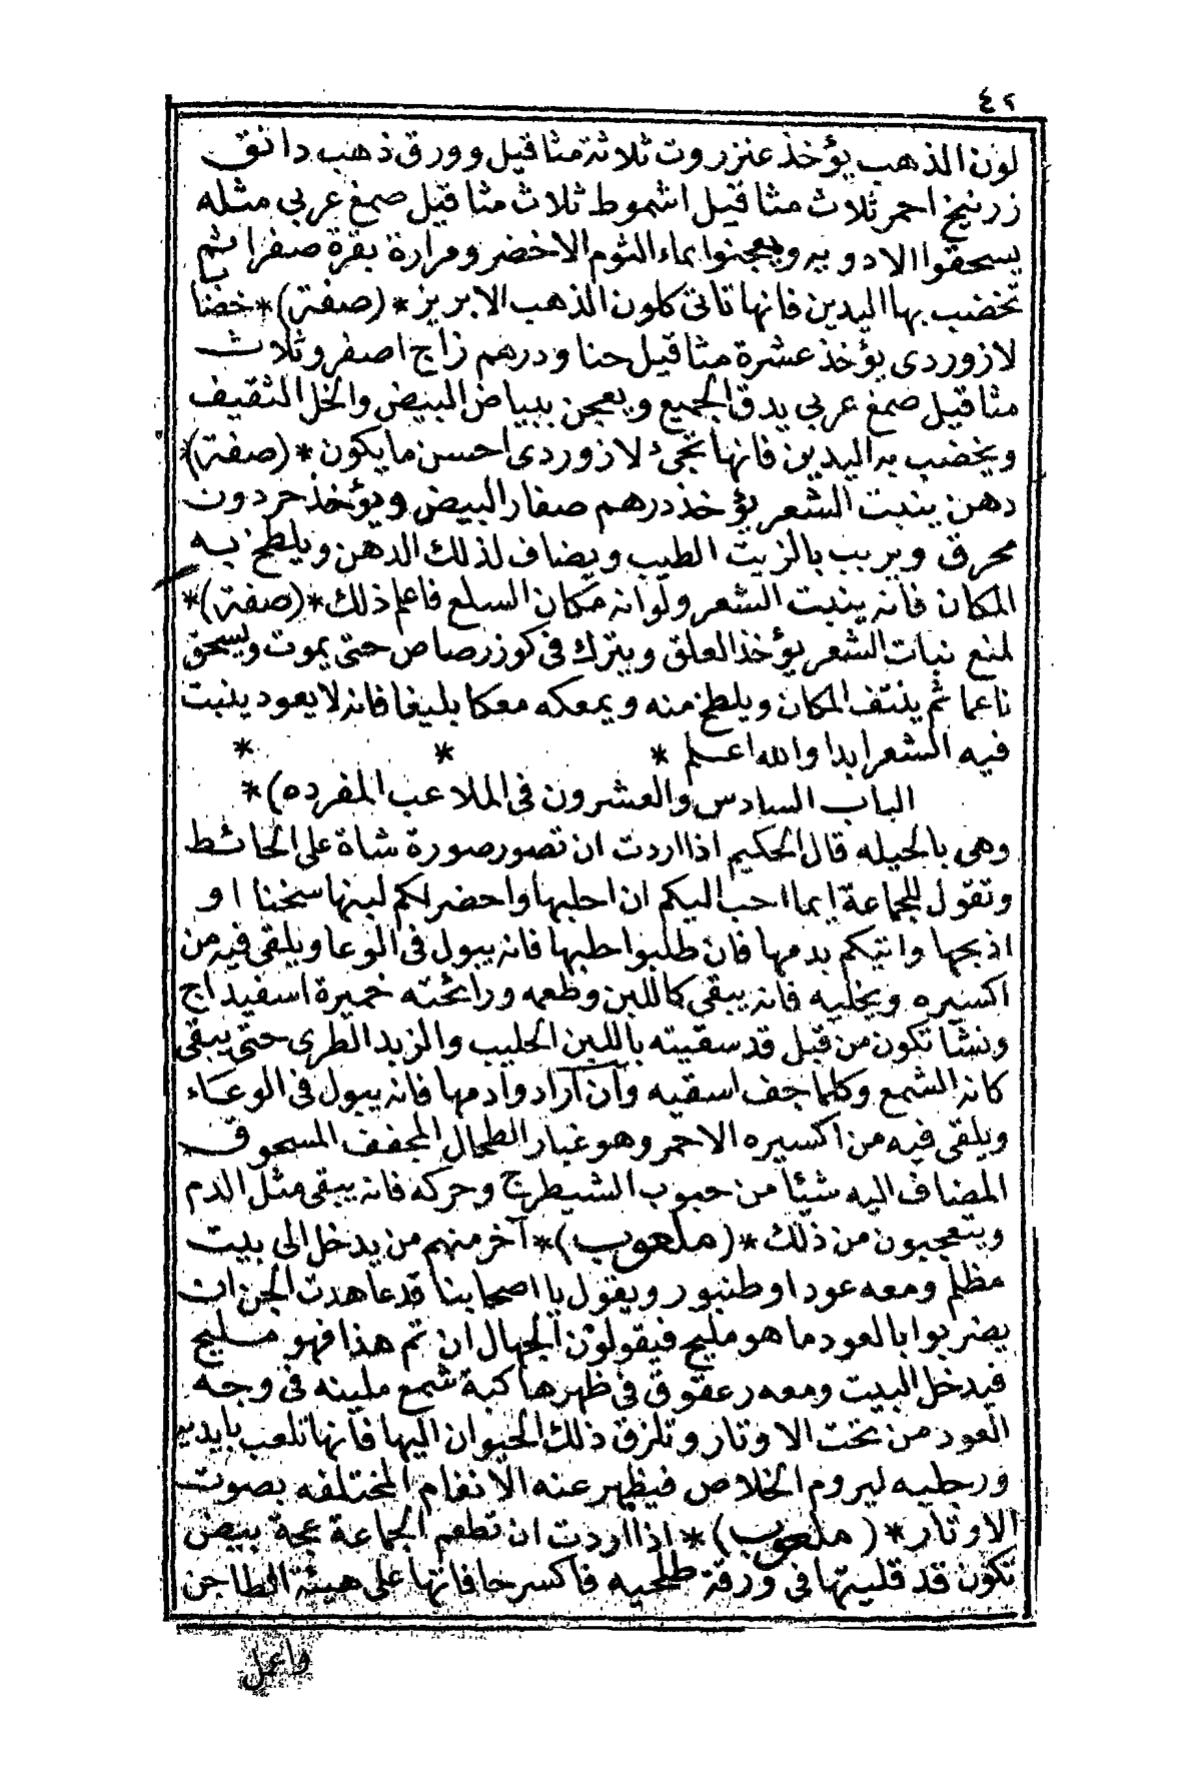 ٤٢
لون الذهب يؤخذ عنزروت ثلاثة مثاقيل وورق ذهب دانق
زرنيخ احمر ثلاث مثاقيل اشموط ثلاث مثاقيل صمغ عربي مثله
يسحقوا الادويه ويعجنوا بماء الثوم الاخضر ومرارة بقرة صفرا ثم
تخضب بها اليدين فانها تاتى كلون الذهب الابريز * (صفة) * خضنا با
لازوردى يؤخذ عشرة مثاقيل حنا ودرهم زاج اصفر وثلاث
مثاقيل صمغ عربي يدق الجميع ويعجن ببياض البيض والخل الثقيف
ويخضب به اليدين فانها تجئ لازوردى احسن ما يكون * (صفة) *
دهن ينبت الشعر يؤخذ درهم صفار البيض ويؤخذ حردون
محرق ويربب بالزيت الطيب ويضاف لذلك الدهن ويلطخ به
المكان فانه ينبت الشعر ولوانه مكان السلع فاعلم ذلك * (صفة) *
لمنع نبات الشعر يؤخذ العلق ويترك فى كوز رصاص حتى يموت ويسحق
ناعما ثم ينتف المكان ويلطخ منه ويمعكه معكا بليغا فانه لا يعود ينبت
فيه الشعر ابدا والله اعلم * * *
الباب السادس والعشرون فى الملاعب المفرده) *
وهى بالحيله قال الحكيم اذا اردت ان تصور صورة شاة على الحائط
وتقول للجماعة ايما احب اليكم ان احلبها واحضر لكم لبنها سخنا او
اذبحها واتيكم بدمها فان طلبوا حلبها فانه يبول فى الوعا ويلقى فيه من
اكسيره ويخليه فانه يبقى كاللبن وطعمه ورائحته خميرة اسفيداج
ونشا تكون من قبل قد سقيته باللبن الحليب والزبد الطرى حتى يبقى
كانه الشمع وكلما جف اسقيه وان ارادوا دمها فانه يبول فى الوعاء
ويلقى فيه من اكسيره الاحمر وهو غبار الطحال المجفف المسحوق
المضاف اليه شيئا من حبوب الشيطرج وحركه فانه يبقى مثل الدم
ويتعجبون من ذلك * (ملعوب) * آخر منهم من يدخل الى بيت
مظلم ومعه عود او طنبور ويقول يا اصحابنا قد عاهدت الجن ان
يضربوا بالعود ما هو مليح فيقولون الجهال ان تم هذا فهو مليح
فيدخل البيت ومعه رعقوق فى ظهرها كبة شمع ملينه فى وجه
العود من تحت الاوتار وتلزق ذلك الحيوان اليها فانها تلعب بايديه
ورجليه ليروم الخلاص فيظهر عنه الانغام المختلفه بصوت
الاوتار * (ملعوب) * اذا اردت ان تطعم الجماعة عجة بيض
تكون قد قليتها فى ورقة طلحيه فاكسر حافاتها على هيئة الطاجن
واعمل